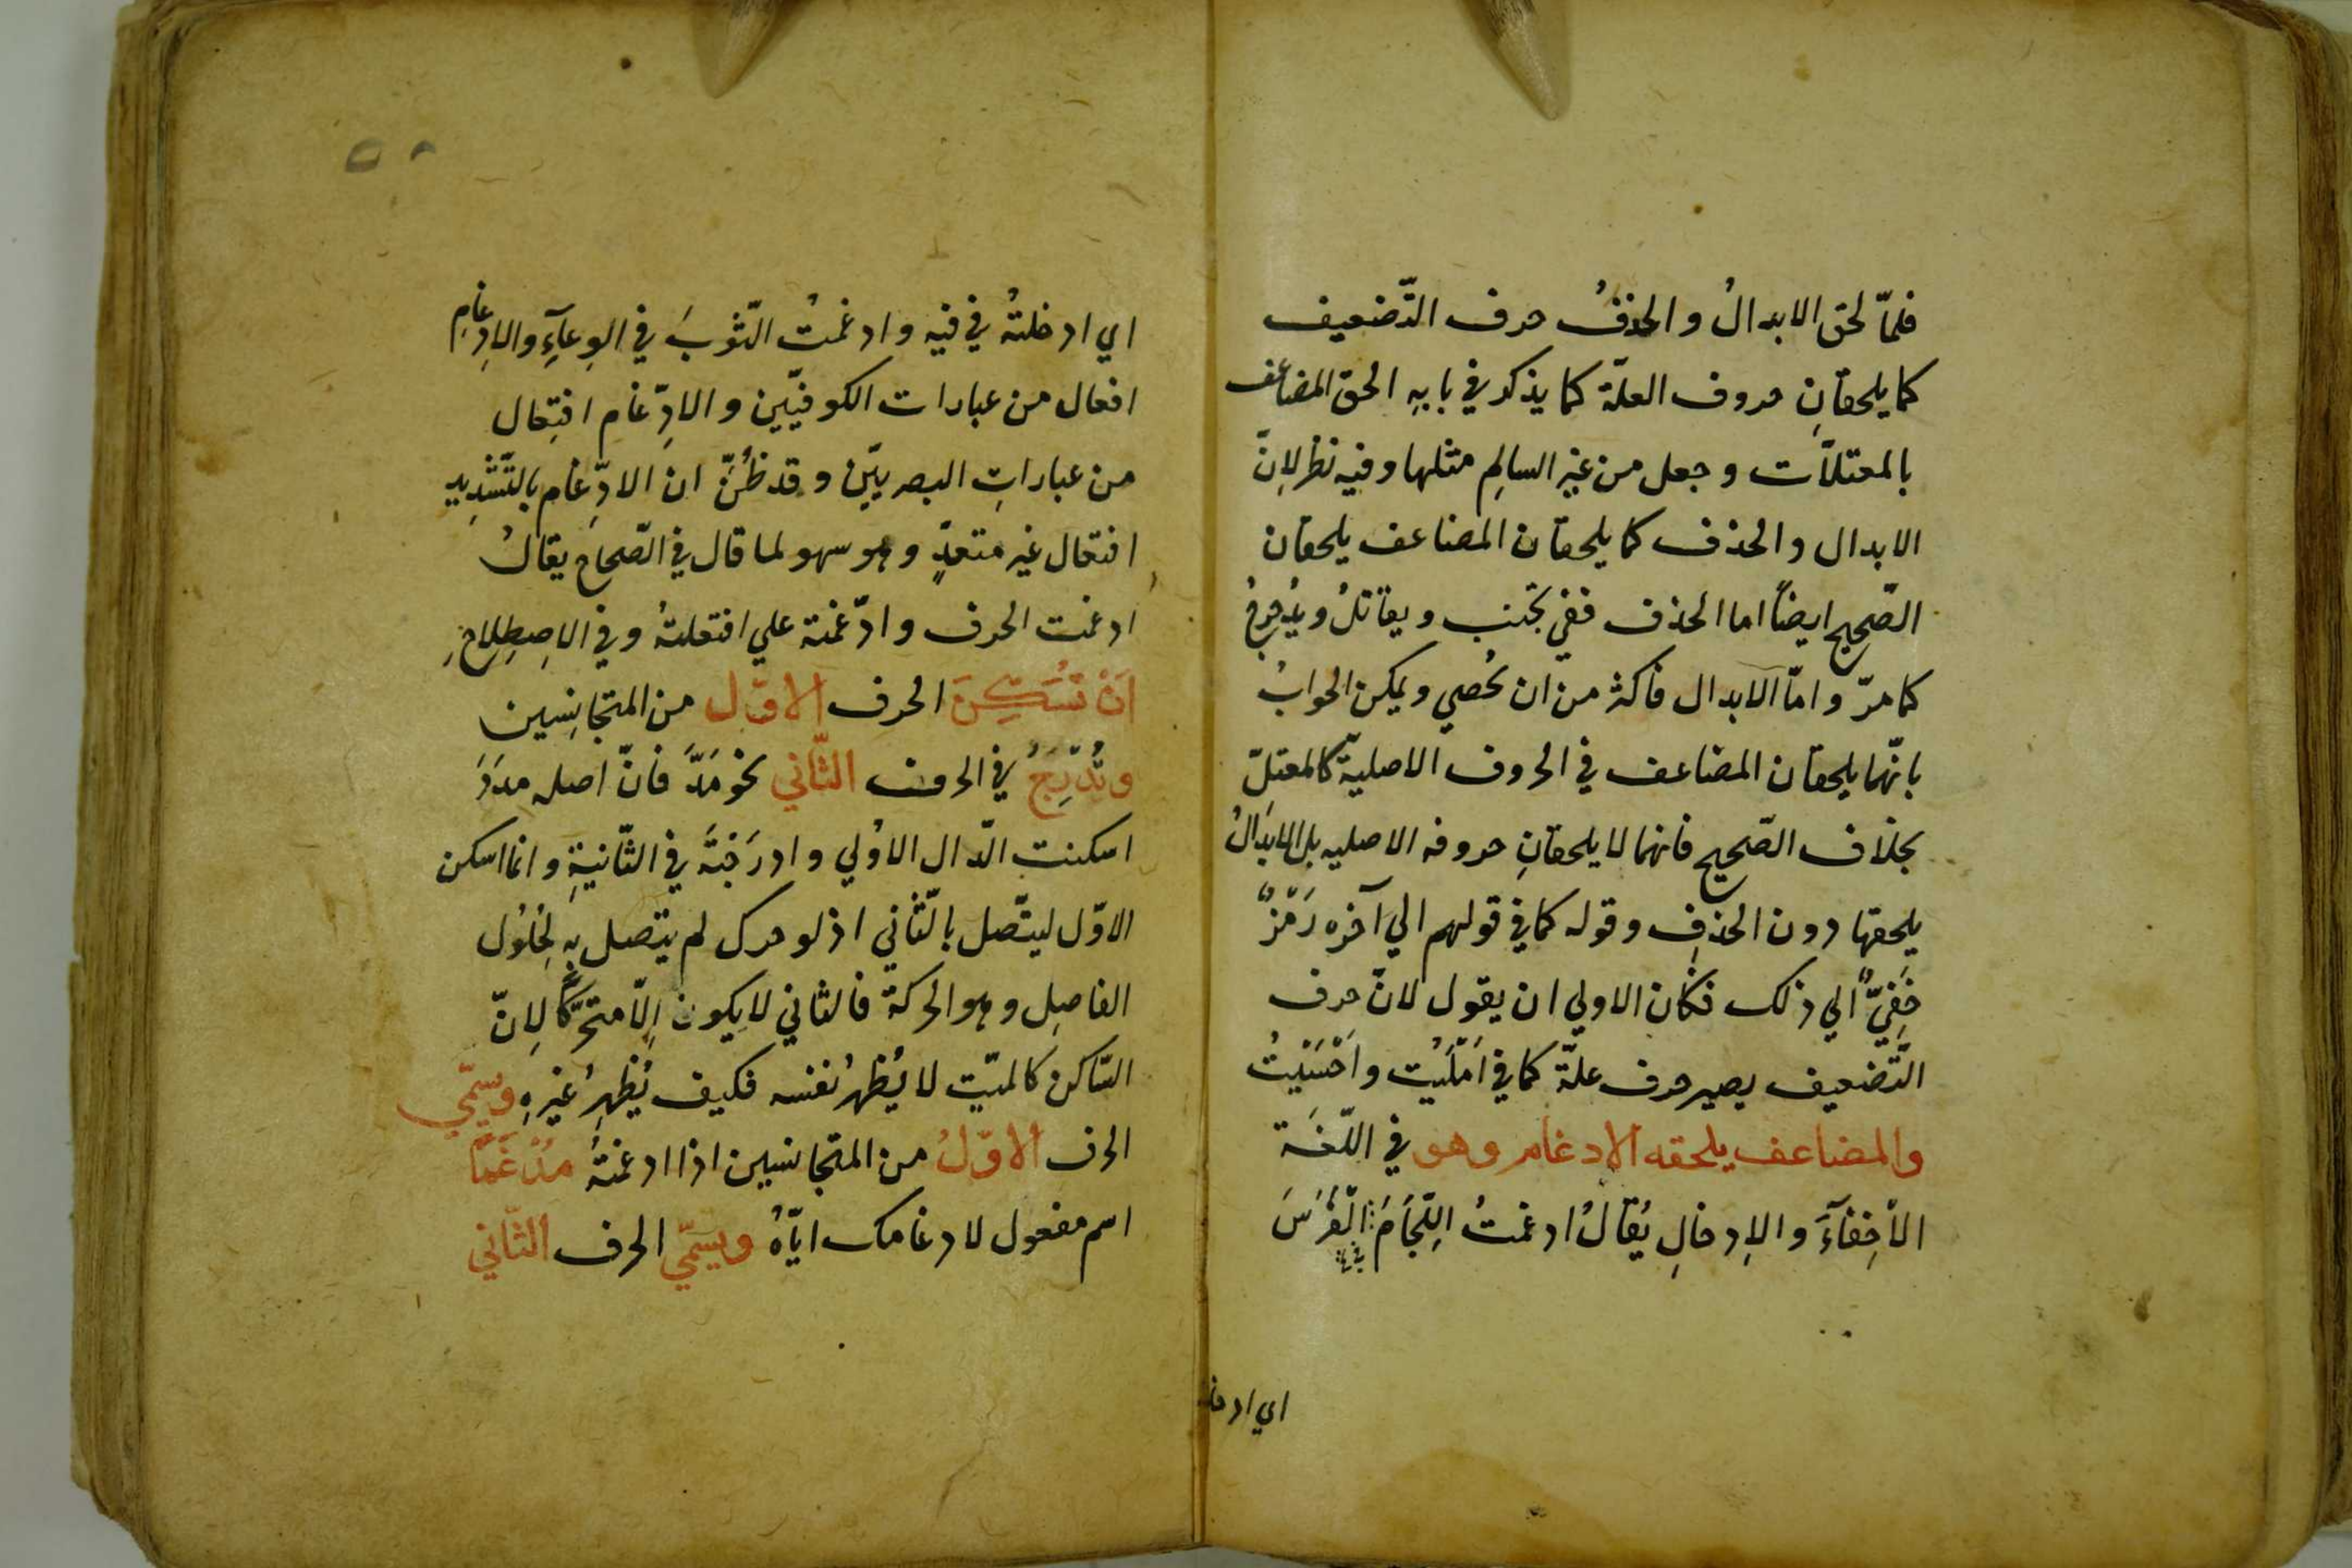 فلمّا لحق الابدالُ والحذفُ حرف التّضعيف
كما يلحقانِ حروف العلّة كما يذكر في بابهِ الحق المضاعف
بالمعتلاّت وجعل من غير السالِم مثلها وفيه نظر لِانّ
الابدال والحذف كما يلحقان المضاعف يلحقان
الصّحيح ايضاً اما الحذف ففي تجنب ويقاتلُ ويُدحرجُ
كما مرّ وامّا الابدال فاكثر من ان تُحصي ويمكن الجوابُ
بانّهما يلحقان المضاعف في الحروف الاصليّة كالمعتلّ
بخلاف الصّحيح فانهما لا يلحقانِ حروفه الاصليه بل الابدَالُ
يلحقها دون الحذفِ وقوله كما في قولهم الي آخره رَمْزٌ
خَفِيٌّ الي ذلك فكان الاولي ان يقول لانّ حرف
التّضعيف يصير حرف علّة كما في اَمْلَيْت واَحْسَيْتُ
والمضاعف يلحقه الادغام وهو في اللّغَة
الاَخِفآءَ والاِدخالِ يُقالُ ادغمتُ اللِّجَامَ الْفَرَسَ
اي ادخل
اي ادخلتُه في فيه وادغمتُ الثّوبَ في الوِعآءِ والاِدغامِ
افعال من عبارات الكوفيّين والادِّغام افتِعال
من عباراتِ البصريّين وقد ظُنَّ ان الادِّغام بالتَّشدِيدِ
افتعال غير متعدٍّ وهو سهو لما قال في الصّحاح يقالُ
ادغمت الحرف وادّغمته علي افتعلتُه وفي الاصِطِلاحِ
اَنْ تُسَكِّنَ الحرف الاوّل من المتجانِسين
وتُدْرِجَ في الحرف الثّاني نحو مَدَّ فانّ اصله مدَدَ
اسكنت الدّال الاوُلي وادرَجْتَ في الثّانيةِ وانما اسكن
الاوّل ليتّصل بالثّاني اذ لو حرك لم يتصل بهِ لِحُلوُل
الفاصِل وهو الحركة فالثاني لا يكون اِلاّ متحرّكاً لِانّ
السّاكن كالميّت لا يُظهرُ نفسه فكيف يُظهِرُ غيرهِ ويسمّي
الحرف الاوّلُ من المتجانسين اذا ادغمتَهُ مُدْغَمًا
اسم مفعول لادغامك ايّاهُ ويسمّي الحرف الثّاني